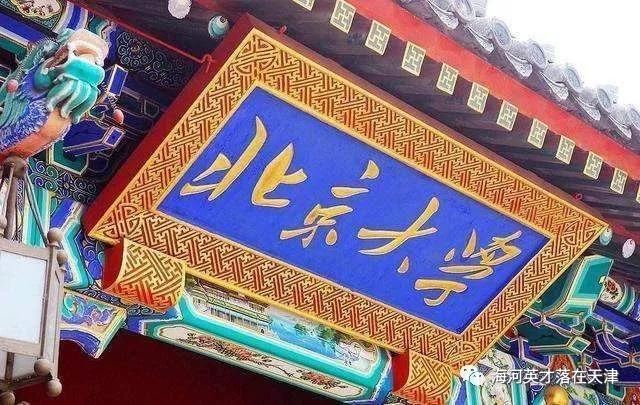 北京大学
海河英才落在天津